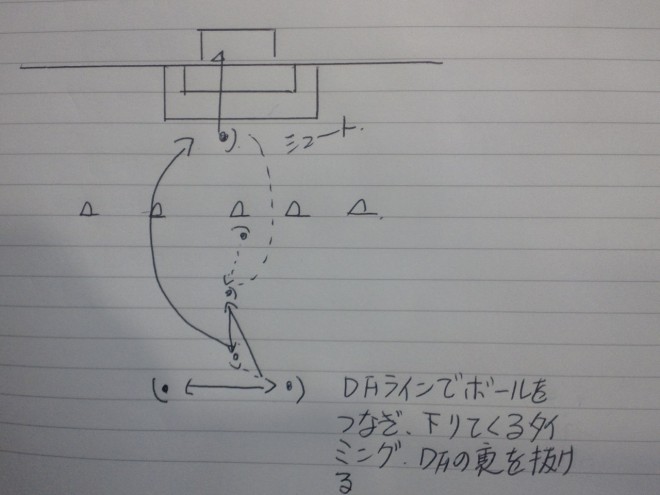 シュート.
DHラインでボールを
つなぎ、下りてくるタイ
ミング.DHの裏を抜け
る